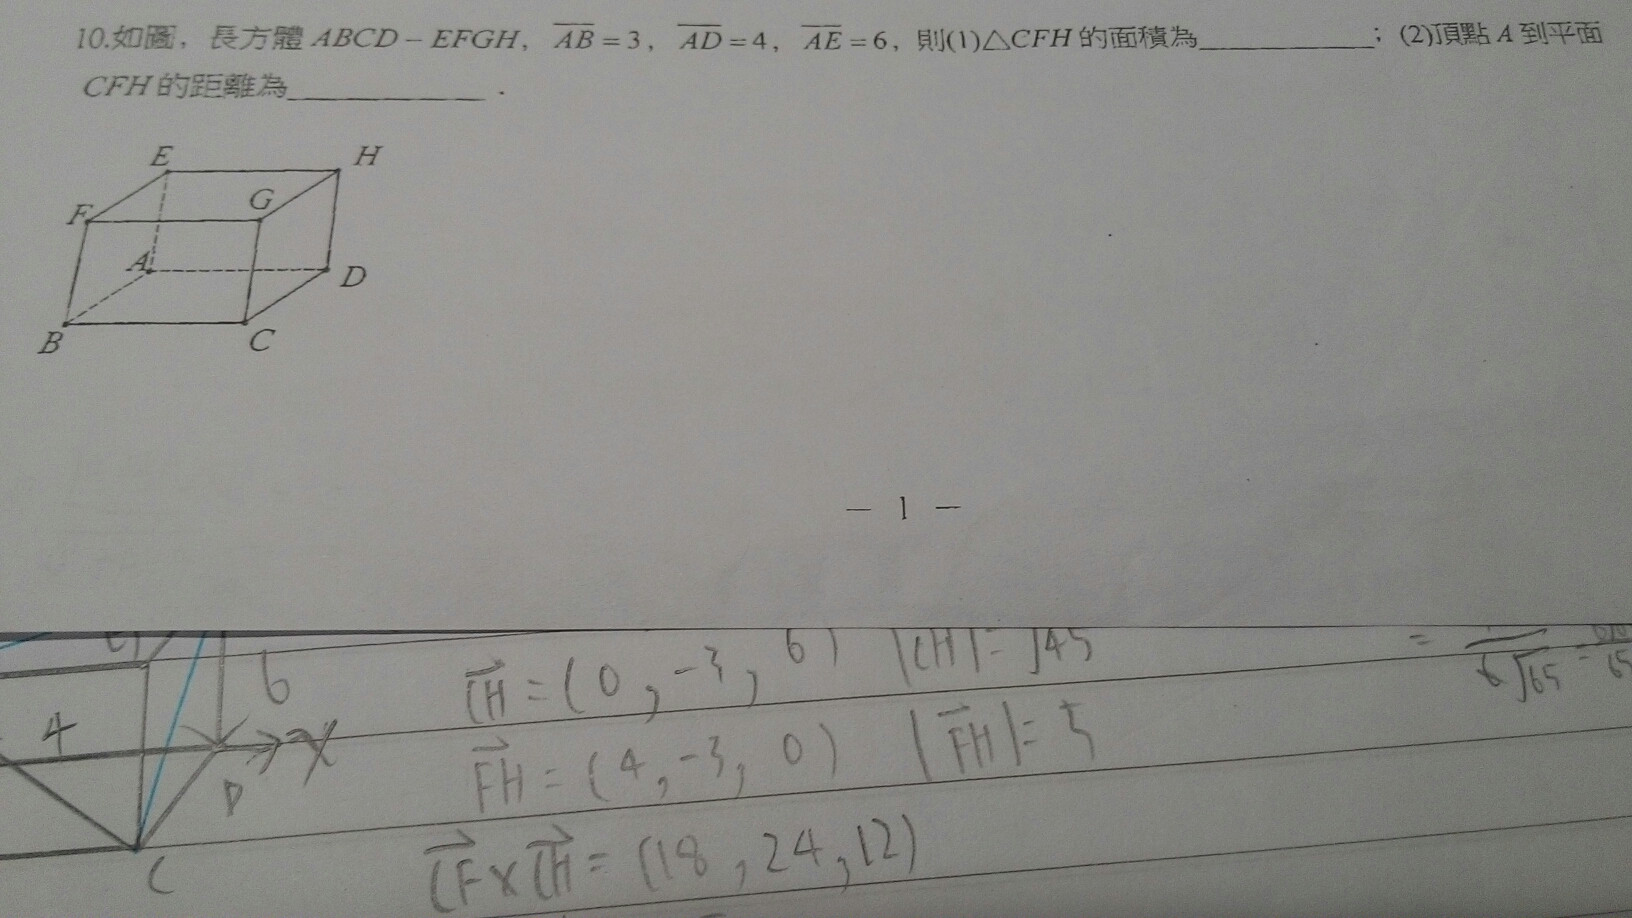 10.如圖，長方體 ABCD－EFGH，AB=3，AD=4，AE=6，則(1)△CFH 的面積為____________；(2)頂點 A 到平面
CFH 的距離為____________．
E H
F G
A D
B C
－ 1 －
6 CH = (0, -3, 6) |CH| = √45 =
6√65 =
4 X FH = (4, -3, 0) |FH| = 5
D
CF × CH = (18, 24, 12)
C